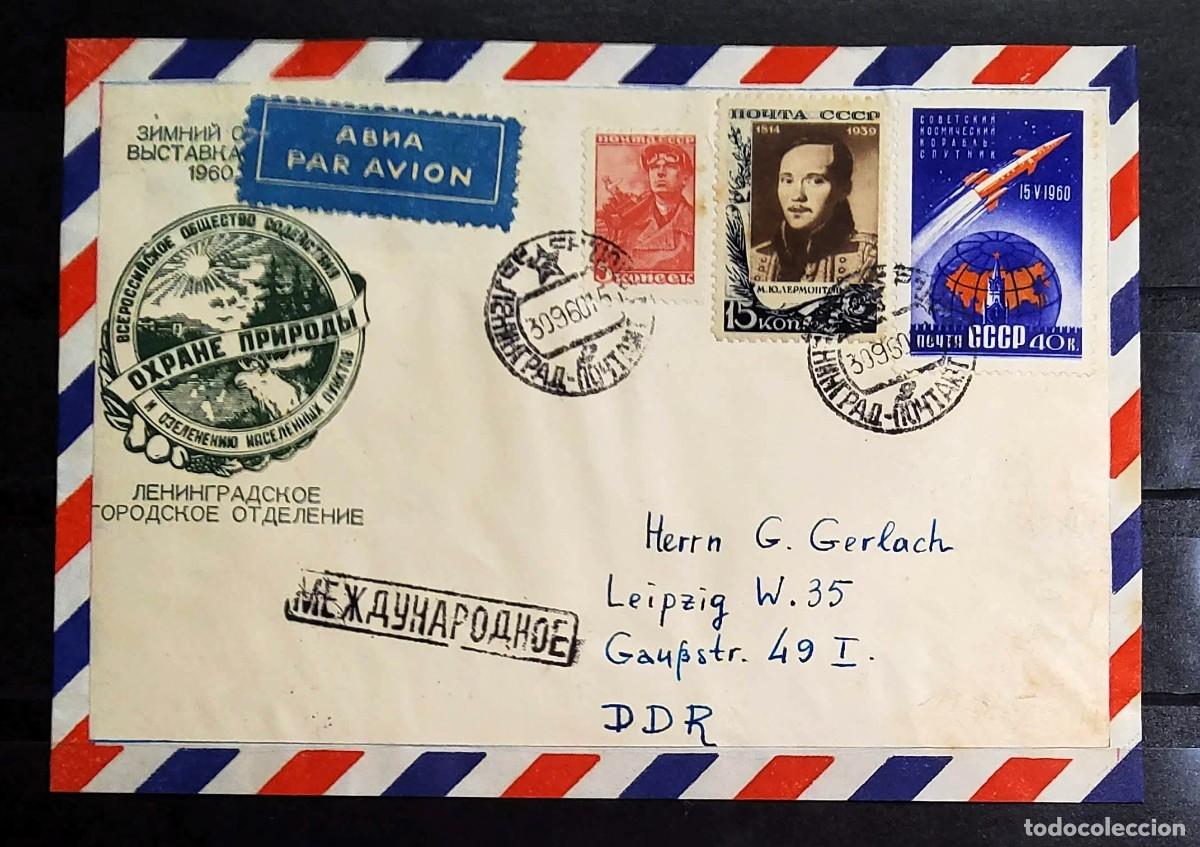 ЗИМНИЙ
ВЫСТАВКА
1960
АВИА
PAR AVION
ВСЕРОССИЙСКОЕ ОБЩЕСТВО СОДЕЙСТВИЯ
ОХРАНЕ ПРИРОДЫ
И ОЗЕЛЕНЕНИЮ НАСЕЛЕННЫХ ПУНКТОВ
ЛЕНИНГРАДСКОЕ
ГОРОДСКОЕ ОТДЕЛЕНИЕ
ПОЧТА СССР
КОПЕЕК
ПОЧТА СССР
1814 1939
М.Ю.ЛЕРМОНТОВ
15 КОП
СОВЕТСКИЙ
КОСМИЧЕСКИЙ
КОРАБЛЬ-
СПУТНИК
15 V 1960
ПОЧТА СССР 40 К.
ЛЕНИНГРАД-ПОЧТАМТ
30960
ЛЕНИНГРАД-ПОЧТАМТ
30960
МЕЖДУНАРОДНОЕ
Herrn G. Gerlach
Leipzig W. 35
Gaußstr. 49 I.
DDR
todocoleccion